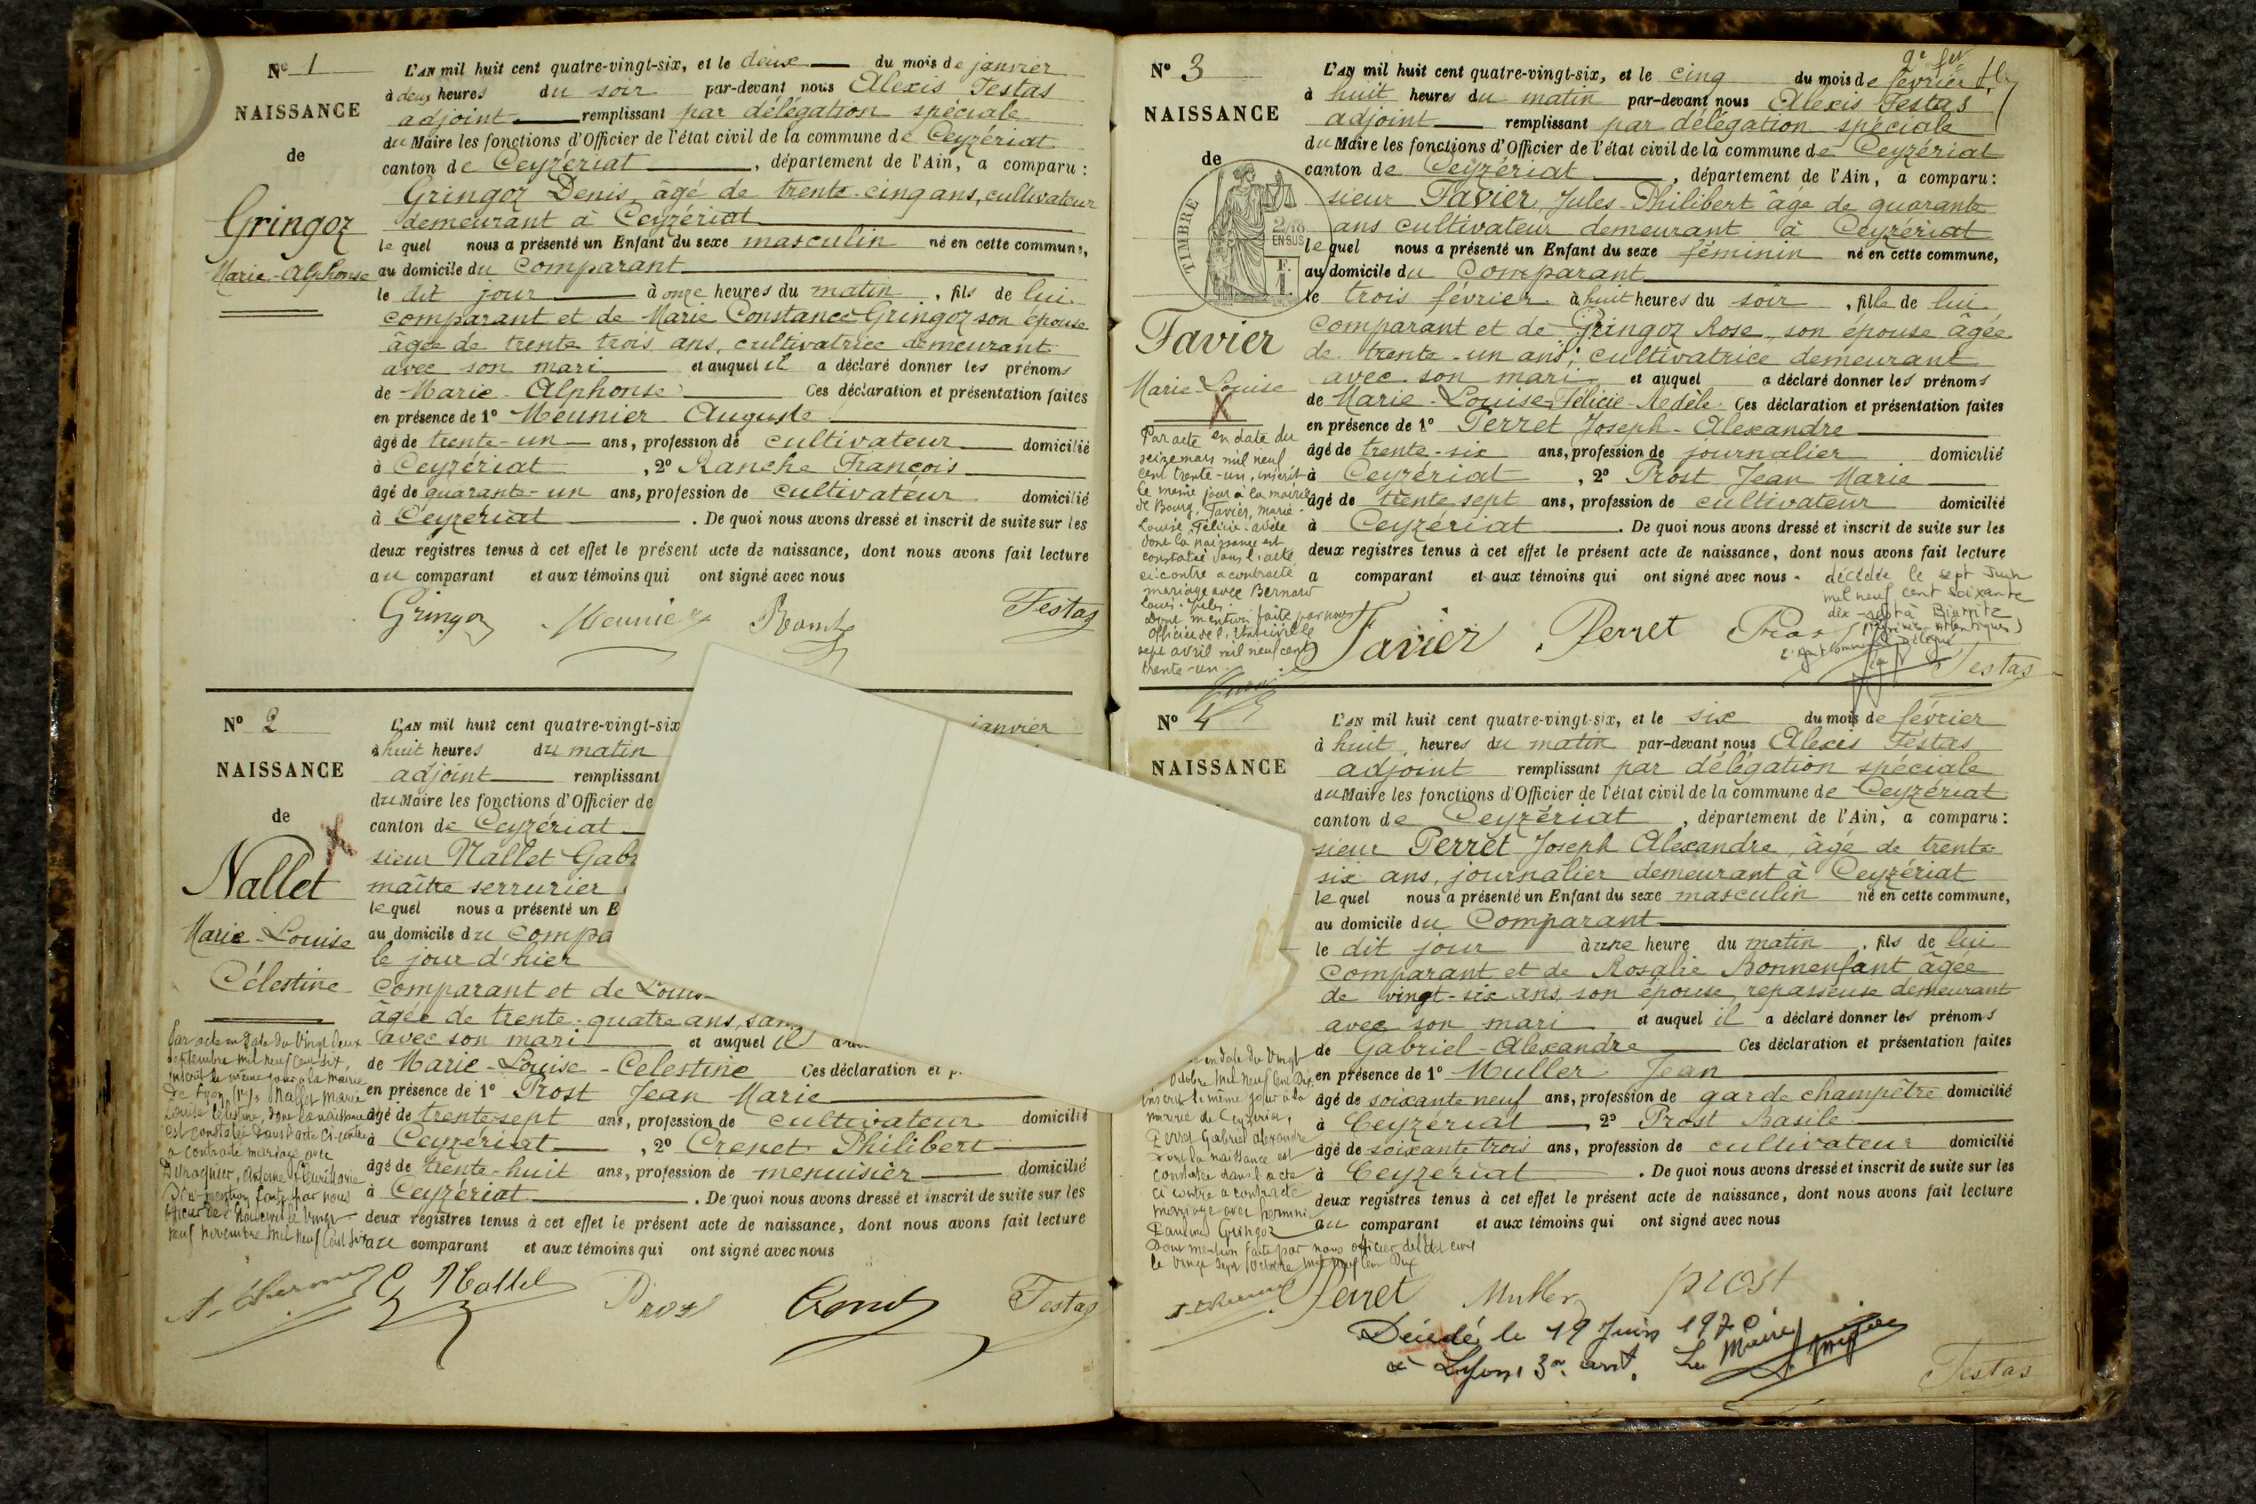 N° 1
NAISSANCE
de
Gringoz
Marie-Alphonse
L'AN mil huit cent quatre-vingt-six, et le deux du mois de janvier
à deux heures du soir par-devant nous Alexis Festas
adjoint remplissant par délégation spéciale
du Maire les fonctions d'Officier de l'état civil de la commune de Ceyzériat
canton de Ceyzériat, département de l'Ain, a comparu:
Gringoz Denis âgé de trente-cinq ans, cultivateur
demeurant à Ceyzériat
lequel nous a présenté un Enfant du sexe masculin né en cette commune,
au domicile du Comparant
le dit jour à onze heures du matin, fils de lui
comparant et de Marie Constance Gringoz son épouse
âgée de trente trois ans, cultivatrice demeurant
avec son mari et auquel il a déclaré donner les prénoms
de Marie-Alphonse Ces déclaration et présentation faites
en présence de 1° Meunier Auguste
âgé de trente-un ans, profession de cultivateur domicilié
à Ceyzériat, 2° Ranche François
âgé de quarante-un ans, profession de cultivateur domicilié
à Ceyzériat. De quoi nous avons dressé et inscrit de suite sur les
deux registres tenus à cet effet le présent acte de naissance, dont nous avons fait lecture
au comparant et aux témoins qui ont signé avec nous
Gringoz Meunier Festas
N° 2
NAISSANCE
de
Nallet
Marie-Louise
Célestine
L'AN mil huit cent quatre-vingt-six janvier
à huit heures du matin
adjoint remplissant
du Maire les fonctions d'Officier de
canton de Ceyzériat
sieur Nallet Gab
maître serrurier
lequel nous a présenté un E
au domicile du Compa
le jour d'hier
comparant et de Louis
âgée de trente-quatre ans, san
avec son mari et auquel il a
de Marie-Louise-Celestine Ces déclaration et p
en présence de 1° Prost Jean Marie
âgé de trente-sept ans, profession de cultivateur domicilié
à Ceyzériat, 2° Crenet Philibert
âgé de trente-huit ans, profession de menuisier domicilié
à Ceyzériat. De quoi nous avons dressé et inscrit de suite sur les
deux registres tenus à cet effet le présent acte de naissance, dont nous avons fait lecture
au comparant et aux témoins qui ont signé avec nous
Par acte en date du vingt deux
septembre mil neuf cent dix,
inscrit le même jour à la mairie
de Lyon, Nallet Marie
Louise Célestine, dont la naissance
est constatée dans l'acte ci-contre
a contracté mariage avec
Antoine Fleury Marie
Dont mention faite par nous
officier de l'état civil le vingt
neuf novembre mil neuf cent dix
G Nallet Prost Crenet Festas
N° 3
NAISSANCE
de
TIMBRE
2/10
EN SUS
F.
1
Favier
Marie-Louise
L'AN mil huit cent quatre-vingt-six, et le cinq du mois de février
à huit heures du matin par-devant nous Alexis Festas
adjoint remplissant par délégation spéciale
du Maire les fonctions d'Officier de l'état civil de la commune de Ceyzériat
canton de Ceyzériat, département de l'Ain, a comparu:
sieur Favier, Jules-Philibert âgé de quarante
ans cultivateur demeurant à Ceyzériat
lequel nous a présenté un Enfant du sexe féminin né en cette commune,
au domicile du Comparant
le trois février à huit heures du soir, fille de lui
Comparant et de Gringoz Rose, son épouse âgée
de trente-un ans, cultivatrice demeurant
avec son mari et auquel a déclaré donner les prénoms
de Marie-Louise-Félicie- Ces déclaration et présentation faites
en présence de 1° Perret Joseph-Alexandre
âgé de trente-six ans, profession de journalier domicilié
à Ceyzériat, 2° Prost Jean Marie
âgé de trente sept ans, profession de cultivateur domicilié
à Ceyzériat. De quoi nous avons dressé et inscrit de suite sur les
deux registres tenus à cet effet le présent acte de naissance, dont nous avons fait lecture
a comparant et aux témoins qui ont signé avec nous.
Par acte en date du
seize mars mil neuf
cent trente-un, inscrit
le même jour à la mairie
de Bourg, Favier, Marie-
Louise, Félicie-
dont la naissance est
constatée dans l'acte
ci-contre a contracté
mariage avec Bernard
Louis-Jules.
Dont mention faite par nous
officier de l'état civil le
sept avril mil neuf cent
trente-un.
décédée le sept Juin
mil neuf cent soixante
dix-sept à Biarritz
(Pyrénées-Atlantiques)
Favier Perret Prost Festas
N° 4
NAISSANCE
L'AN mil huit cent quatre-vingt-six, et le six du mois de février
à huit heures du matin par-devant nous Alexis Festas
adjoint remplissant par délégation spéciale
du Maire les fonctions d'Officier de l'état civil de la commune de Ceyzériat
canton de Ceyzériat, département de l'Ain, a comparu:
sieur Perret Joseph Alexandre, âgé de trente
six ans, journalier demeurant à Ceyzériat
lequel nous a présenté un Enfant du sexe masculin né en cette commune,
au domicile du Comparant
le dit jour à une heure du matin, fils de lui
Comparant et de Rosalie Bonnenfant âgée
de vingt-six ans son épouse, repasseuse demeurant
avec son mari et auquel il a déclaré donner les prénoms
de Gabriel-Alexandre Ces déclaration et présentation faites
en présence de 1° Muller Jean
âgé de soixante neuf ans, profession de garde champêtre domicilié
à Ceyzériat, 2° Prost Basile
âgé de soixante trois ans, profession de cultivateur domicilié
à Ceyzériat. De quoi nous avons dressé et inscrit de suite sur les
deux registres tenus à cet effet le présent acte de naissance, dont nous avons fait lecture
au comparant et aux témoins qui ont signé avec nous
en date du vingt
octobre mil neuf cent dix,
inscrit le même jour à la
mairie de Ceyzériat,
Perret Gabriel Alexandre
dont la naissance est
constatée dans l'acte
ci contre a contracté
mariage avec
Gringoz
Dont mention faite par nous officier de l'état civil
le vingt sept octobre mil neuf cent dix
Perret Muller prost
Décédé le 19 Juin 1970
à Lyon 3e arrt. Le Maire
Festas